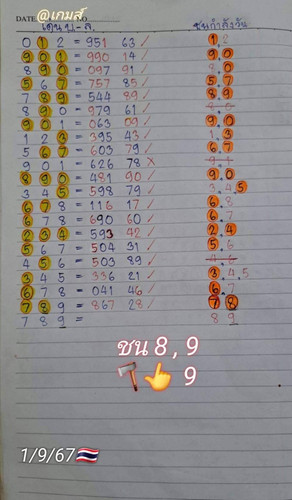 DATE @เกมส์
เดินบน-ล. ชนกำลังวัน
0 1 2 = 951 63 / 1,2
9 0 1 = 990 14 / 9,0
8 9 0 = 097 91 / 8,9
5 6 7 = 757 85 / 5 7
7 8 9 = 544 89 / 8 9
8 9 0 = 979 61 /
9 0 1 = 063 09 / 9,0
1 2 3 = 395 43 / 1,3
5 6 7 = 603 79 / 6 7
9 0 1 = 626 78 × 9 1
8 9 0 = 481 90 / 9 0
3 4 5 = 598 79 / 3.4 5
6 7 8 = 116 17 / 6 8
6 7 8 = 690 60 / 6 7
2 3 4 = 593 42 / 2 4
5 6 7 = 504 31 / 5,6
4 5 6 = 503 89 / 4 6
3 4 5 = 336 21 / 3 4.5
6 7 8 = 041 46 / 6,7
7 8 9 = 867 28 / 7 8
7 8 9 = 8 9
ชน 8 , 9
9
1/9/67